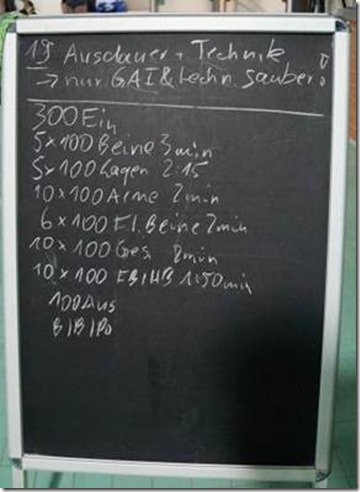 19 Ausdauer + Technik
→ nur GAI & techn. sauber!
300 Ein
5x100 Beine 3min
5x100 Lagen 2:15
10x100 Arme 2min
6x100 F.l. Beine 2min
10x100 Ges 2min
10x100 1:50min
100 Aus
B/B/Po